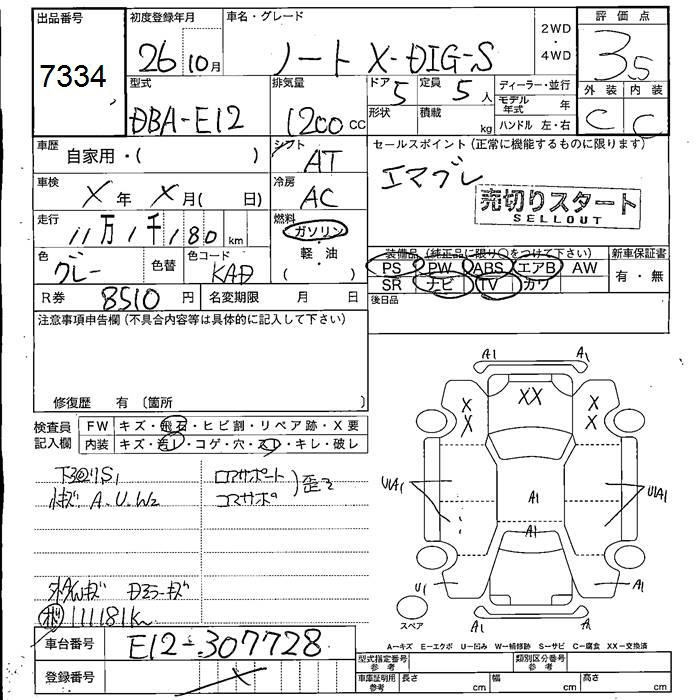 出品番号
7334
初度登録年月
26 10月
車名・グレード
ノート X-DIG-S
2WD
・
4WD
評価点
3.5
型式
DBA-E12
排気量
1200 cc
ドア
5
形状
定員
5人
積載
kg
ディーラー・並行
モデル年式 年
ハンドル 左・右
外装 内装
C C
車歴
自家用・( )
シフト
AT
セールスポイント(正常に機能するものに限ります)
エマブレ
売切りスタート
SELLOUT
車検
X年 X月( 日)
冷房
AC
走行
11万1千180km
燃料
ガソリン
軽・油
( )
色
グレー
色替
色コード
KAD
装備品(純正品に限り○をつけて下さい)
PS PW ABS エアB AW
SR ナビ TV カワ
新車保証書
有・無
R券 8510 円
名変期限 月 日
後日品
注意事項申告欄(不具合内容等は具体的に記入して下さい)
修復歴 有〔箇所 〕
検査員記入欄
FW キズ・飛石・ヒビ割・リペア跡・X要
内装 キズ・汚レ・コゲ・穴・スレ・キレ・破レ
コアサポート
コマサポ
歪ミ
A.U.W2
111181km
車台番号 E12-307728
登録番号
A1 A1
XX
X X
X X
U1A1 A1 U1A1
U1 A1 A1
A1 A1
スペア
A-キズ E-エクボ U-凹み W-補修跡 S-サビ C-腐食 XX-交換済
型式指定番号 参考
類別区分番号 参考
車庫証明用 参考
長さ cm 幅 cm 高さ cm